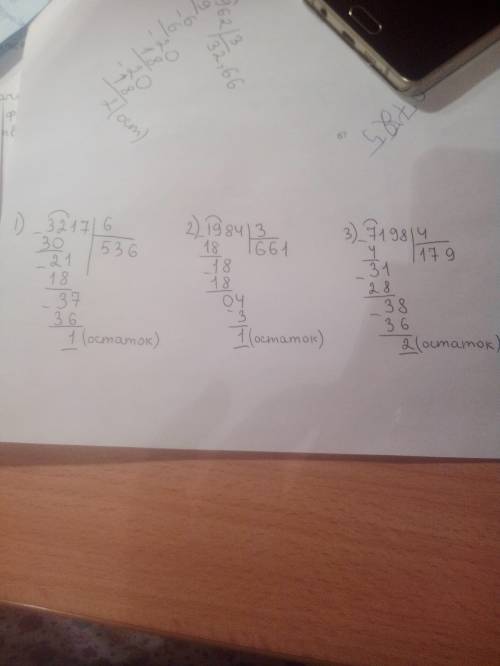 962 | 3
32,66
1 (ост)
1) - 3217 | 6
30 | 536
- 21
18
- 37
36
1 (остаток)
2) - 1984 | 3
18 | 661
- 18
18
04
- 3
1 (остаток)
3) - 7198 | 4
4 | 179
31
- 28
- 38
36
2 (остаток)